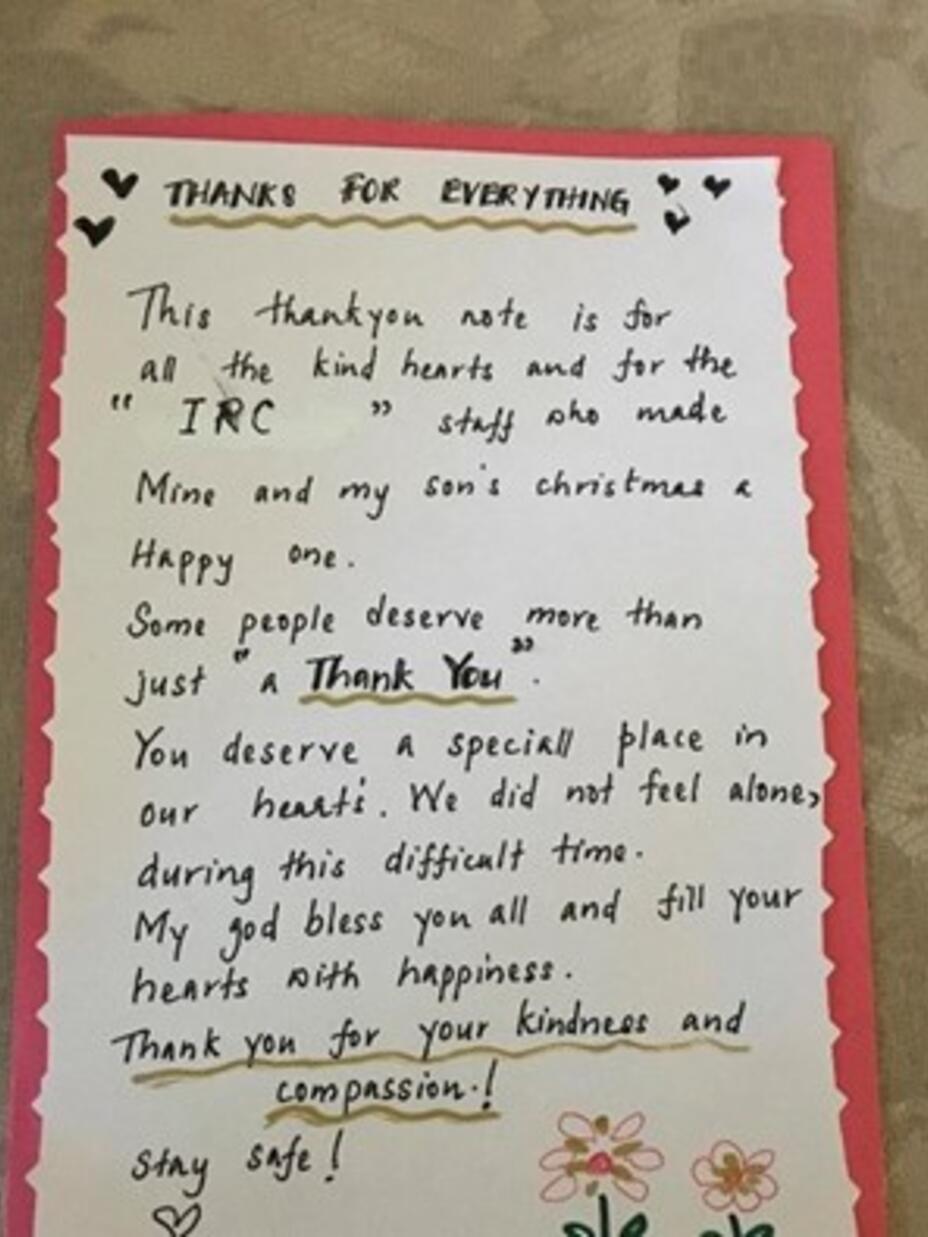 THANKS FOR EVERYTHING
This thankyou note is for
all the kind hearts and for the
" IRC " staff who made
Mine and my son's christmas a
Happy one.
Some people deserve more than
just "a Thank You".
You deserve a speciall place in
our heart's. We did not feel alone,
during this difficult time.
My god bless you all and fill your
hearts with happiness.
Thank you for your kindness and
compassion.!
Stay safe!